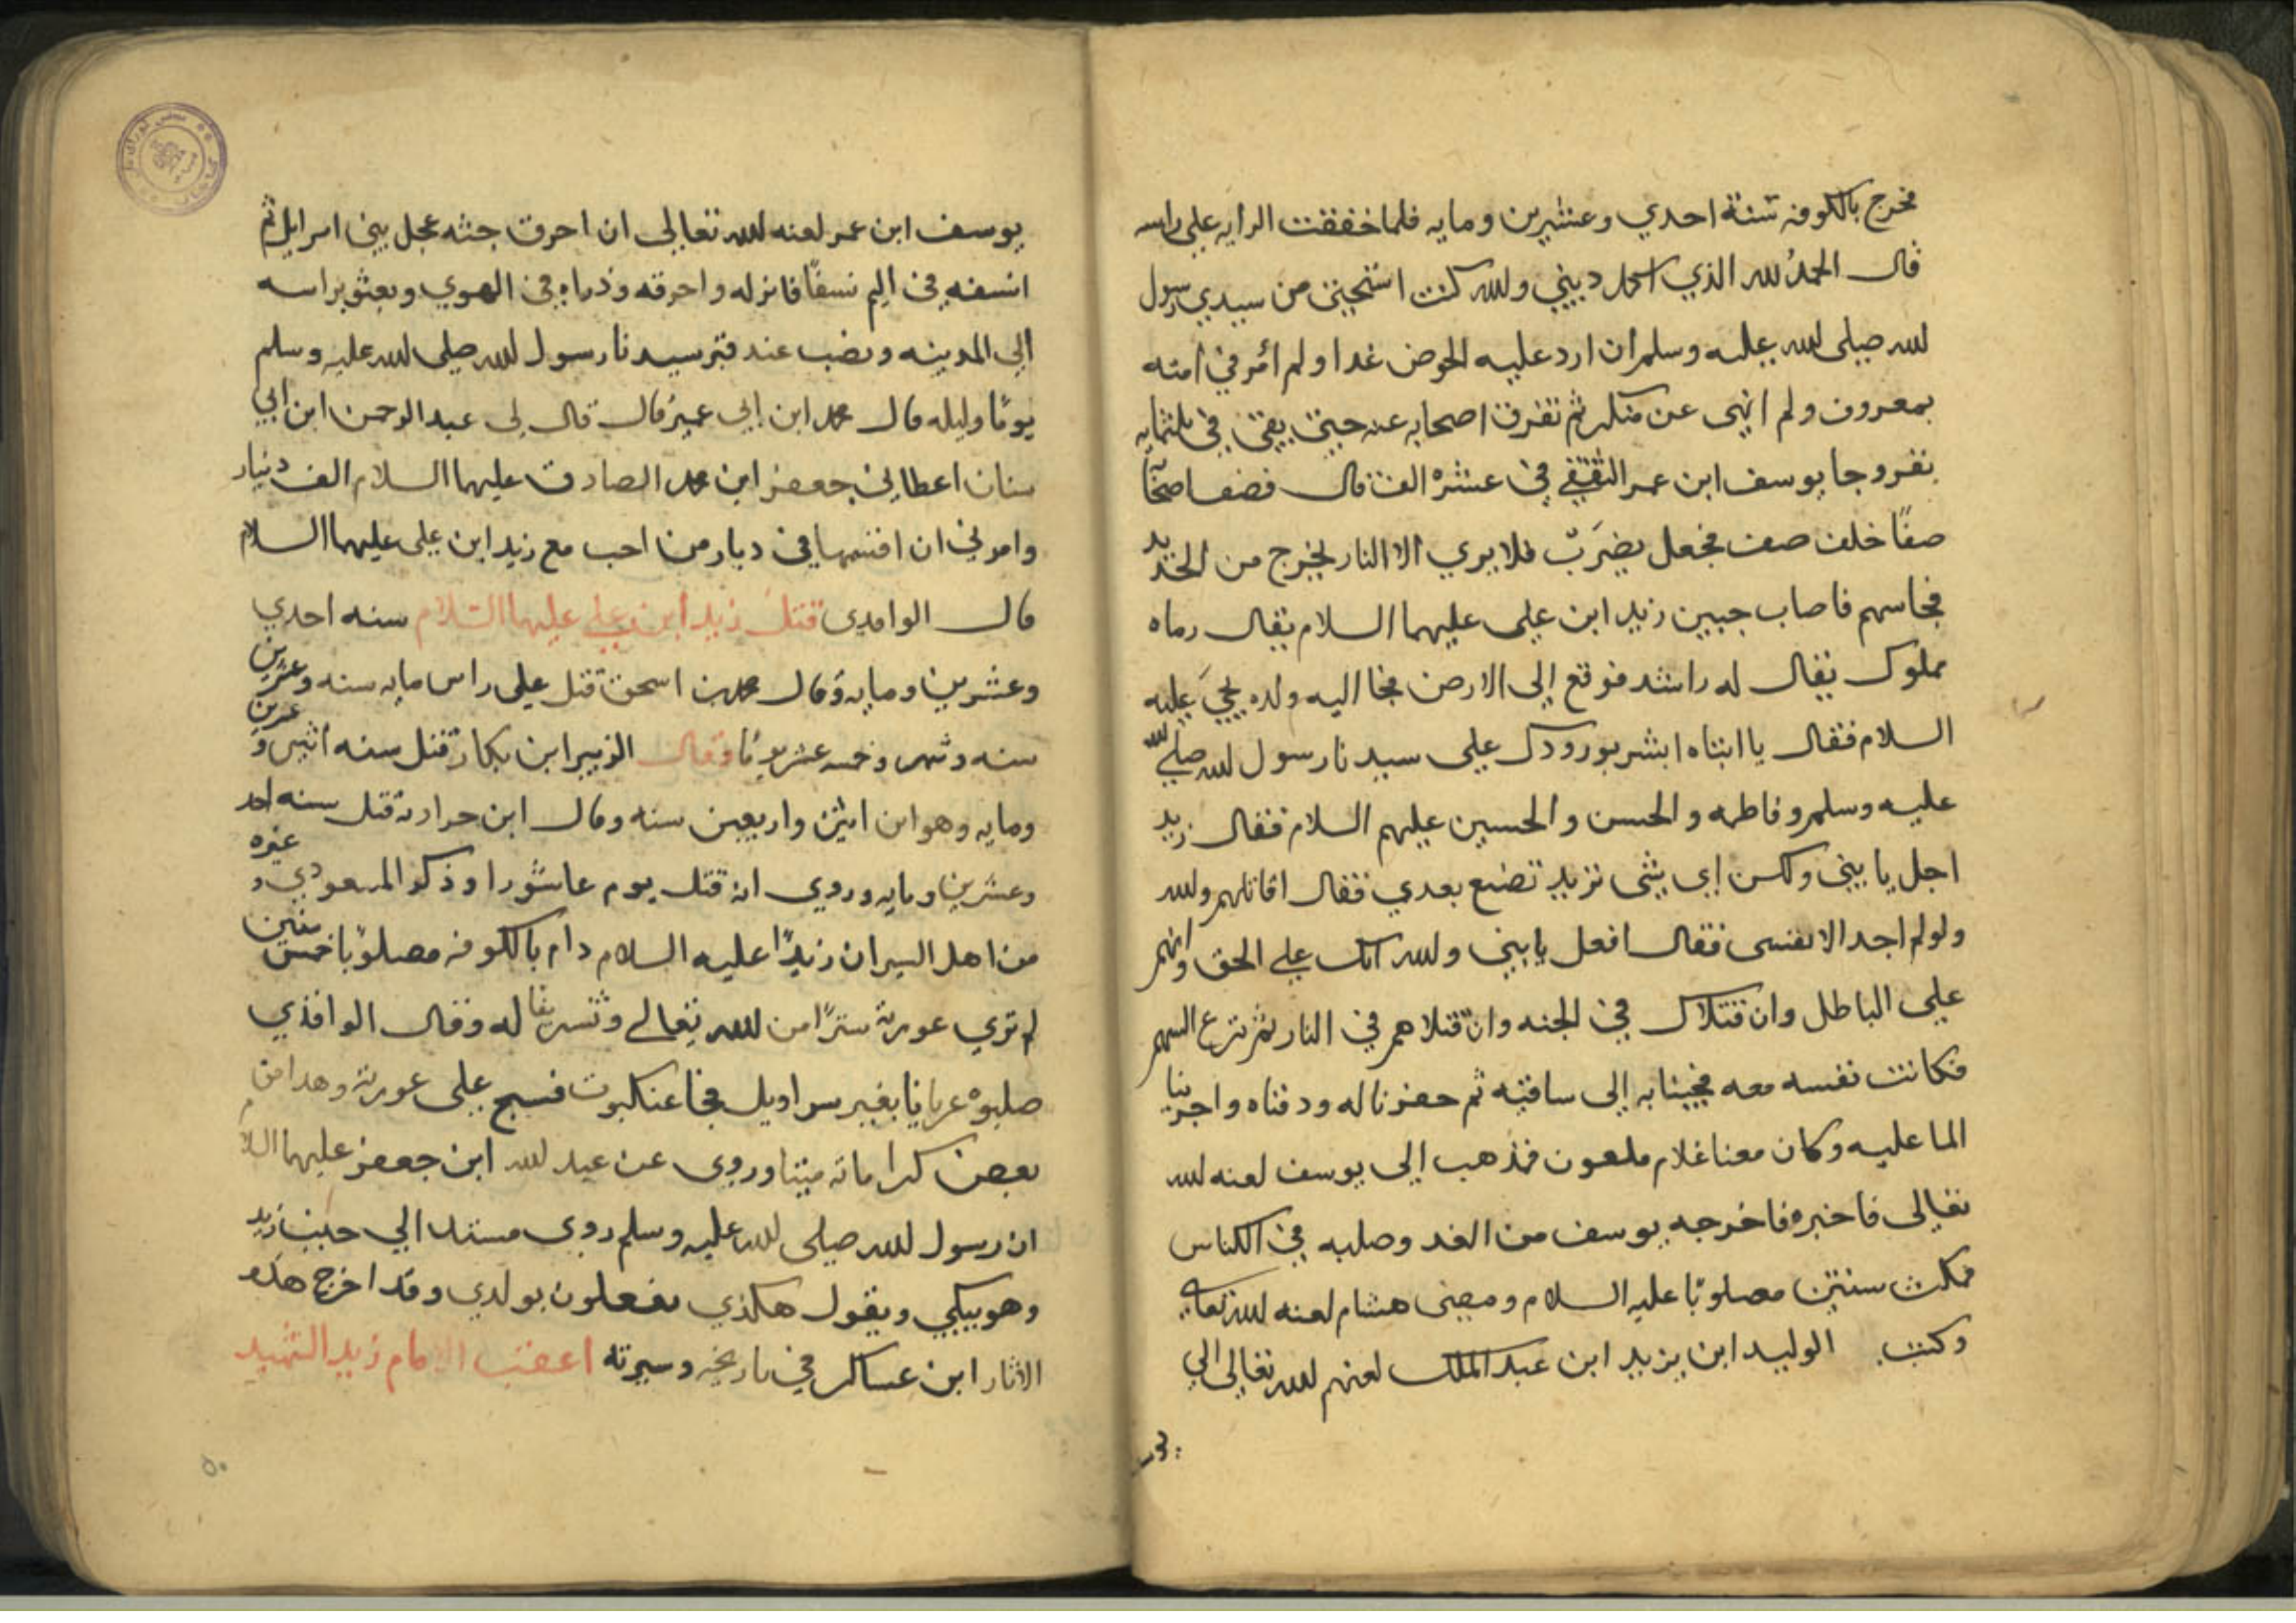 فخرج بالكوفه سنة احدي وعشرين ومايه فلما خفقت الرايه علي راسه
قال الحمد لله الذي اكمل ديني ولله كنت استحيي من سيدي رسول
لله صلى لله عليه وسلم ان ارد عليه الحوض غدا ولم أمر في امته
بمعروف ولم انهى عن منكر ثم تفرق اصحابه عنه حتى بقى في ثلثمايه
نفر وجا يوسف ابن عمر الثقفي في عشره الف قال فصف اصحابه
صفا خلف صف فجعل يضرب فلا يري الا النار يخرج من الحديد
فجا سهم فاصاب جبين زيد ابن علي عليهما السلام يقال رماه
مملوك يقال له راشد فوقع إلى الارض فجا اليه ولده يحيى عليه
السلام فقال يا ابتاه ابشر بورودك على سيدنا رسول لله صلى لله
عليه وسلم وفاطمه والحسن والحسين عليهم السلام فقال زيد
اجل يا بنى ولكن اى شى تريد تصنع بعدي فقال اقاتلهم ولله
ولو لم اجد الا نفسى فقال افعل يا بنى ولله انك على الحق وانهم
على الباطل وان قتلاك في الجنه وان قتلاهم في النار ثم نزع السهم
فكانت نفسه معه فجينا به إلى ساقيه ثم حفرنا له ودفناه واجرينا
الما عليه وكان معنا غلام ملعون فذهب إلى يوسف لعنه لله
تعالى فاخبره فاخرجه يوسف من الغد وصلبه في الكناس
فمكث سنتين مصلوبا عليه السلام ومضى هشام لعنه لله تعالى
وكتب الوليد ابن يزيد ابن عبد الملك لعنهم لله تعالى الي
يوسف ابن عمر لعنه لله تعالى ان احرق جثه عجل بني اسرايل ثم
انسفه في اليم نسفًا فانزله واحرقه وذراه في الهوي وبعث براسه
إلى المدينه ونصب عند قبر سيدنا رسول لله صلى لله عليه وسلم
يومًا وليله قال محمد ابن ابى عمير قال قال لى عبد الرحمن ابن ابي
سنان اعطانى جعفر ابن محمد الصادق عليهما السلام الف دينار
وامرني ان اقسمها في ديار من احب مع زيد ابن على عليهما السلام
قال الواقدى قتل زيد ابن على عليهما السلام سنه احدي
وعشرين ومايه وقال محمد بن اسحق قتل على راس مايه سنه وعشرين
سنه وشهر وخمسه عشر يومًا وقال الزبير ابن بكار قتل سنه اثنين وعشرين
ومايه وهو ابن اثنين واربعين سنه وقال ابن قتل سنه احد
وعشرين ومايه وروي انه قتل يوم عاشورا وذكر المسعودي وغيره
من اهل السير ان زيدًا عليه السلام دام بالكوفه مصلوبًا خمس سنين
لم تري عورته سترًا من لله تعالى وتشريفا له وقال الواقدي
صلبوه عريانا بغير سراويل فجا عنكبوت فنسج على عورته وهدا من
بعض كراماته ميتا وروى عن عبد لله ابن جعفر عليهما السلام
ان رسول لله صلى لله عليه وسلم روى مستندا الي زيد
وهو يبكي ويقول هكذي يفعلون بولدي وقد اخرج هذه
الاثار ابن عساكر في تاريخه وسيرته اعقب الامام زيد الشهيد
٥٠